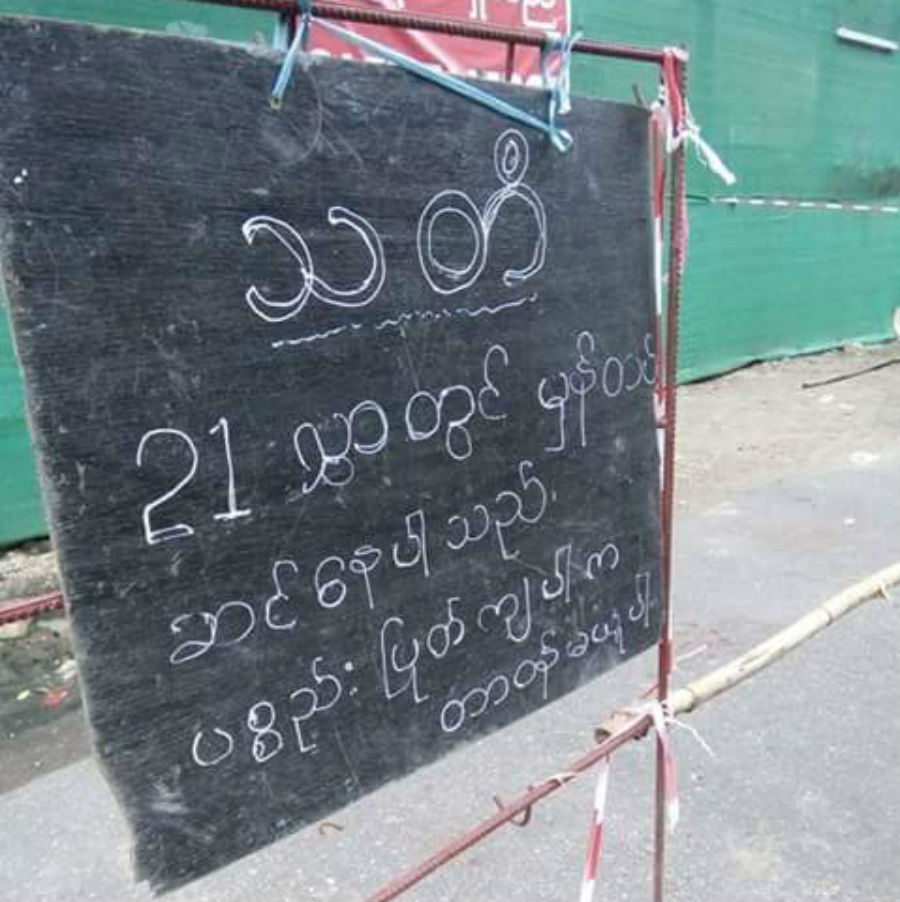 သတိ
21 လွှာတွင် မှန်တပ်
ဆင်နေပါသည်.
ပစ္စည်း ပြုတ်ကျပါက
တာဝန်မယူပါ.